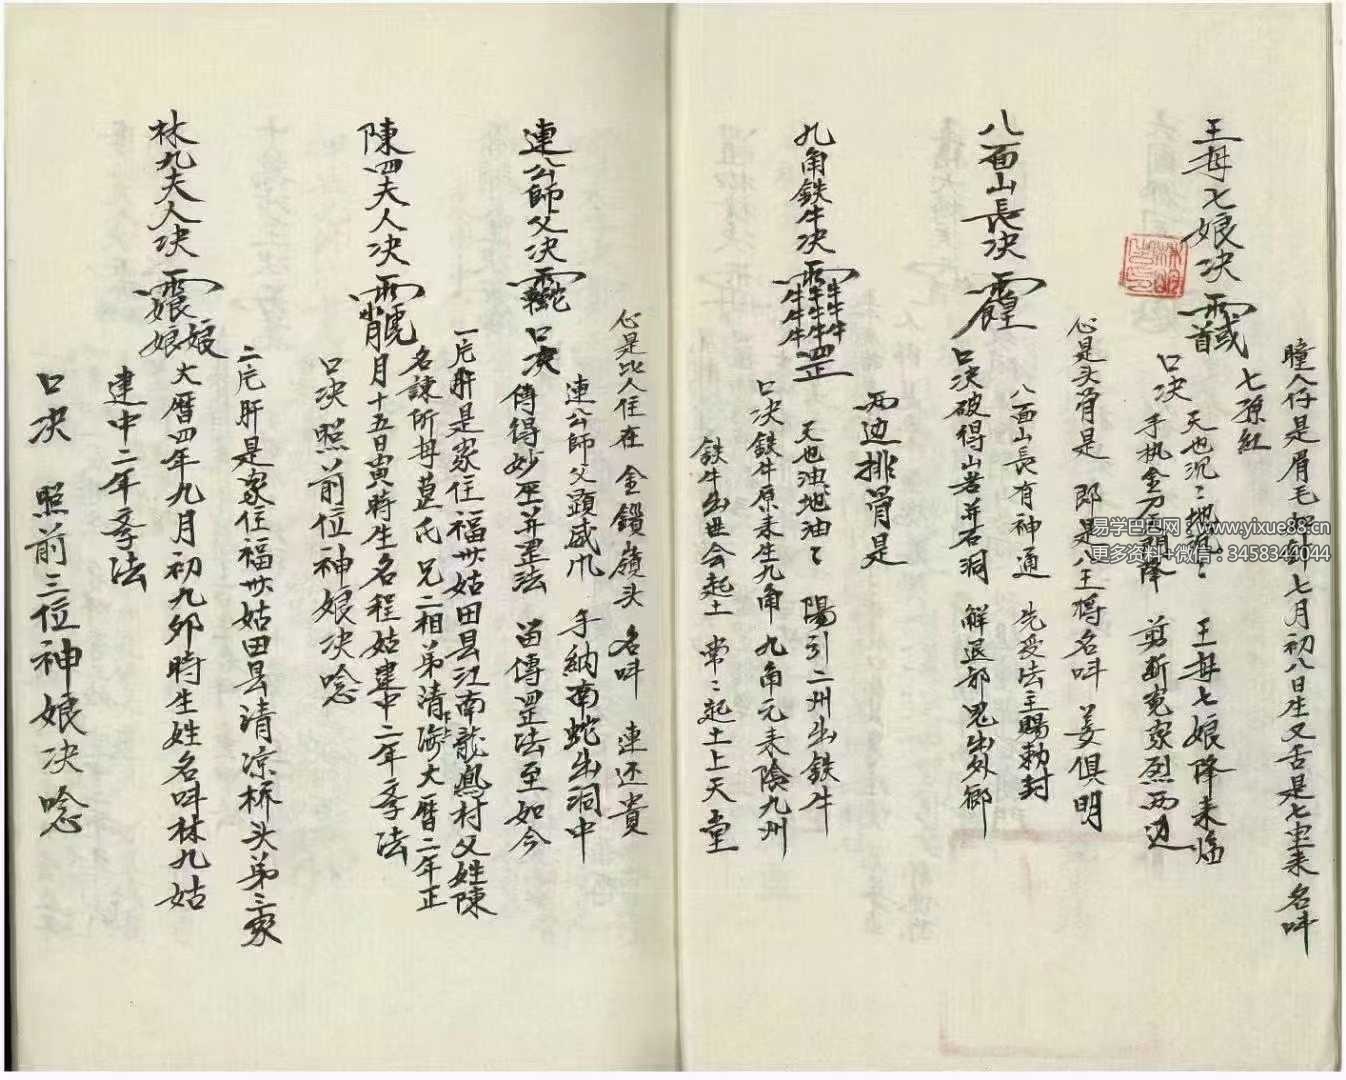 瞳人仔是眉毛相針七月初八日生又舌是七里来名呌
七孫紅
王母七娘决
口决 天也沉〻地沉〻 王母七娘降来临
手执金刀開降 剪断冤家烈两边
心是头骨是 郎是八王將名呌 姜俱明
八面山長决
八面山長有神通 先受法主賜勅封
口决破得山岩并石洞 解退邪鬼出外鄉
两边排骨是
九角鉄牛决
天也油地油〻 陽引二州出鉄牛
口决鉄牛原来生九角 九角元来陰九州
鉄牛出世会起土 常〻起土上天堂
心是比人住在 金鎖嶺头 名呌 連还貴
連公師父决
口决 連公師父顕威 手納南蛇出洞中
傳得妙 并罡法 留傳罡法至如今
陳四夫人决
一片肝是家住福州姑田县江南龍鳳村父姓陳
名諫所母葛氏兄二相弟清海大曆二年正
月十五日寅時生名程姑建中二年孝法
口决照前位神娘决唸
林九夫人决
二片肝是家住福州姑田县清凉桥头弟三家
大曆四年九月初九卯時生姓名呌林九姑
建中二年孝法
口决 照前三位神娘决唸
易学巴巴网：www.yixue88.cn
更多资料+微信：3458344044